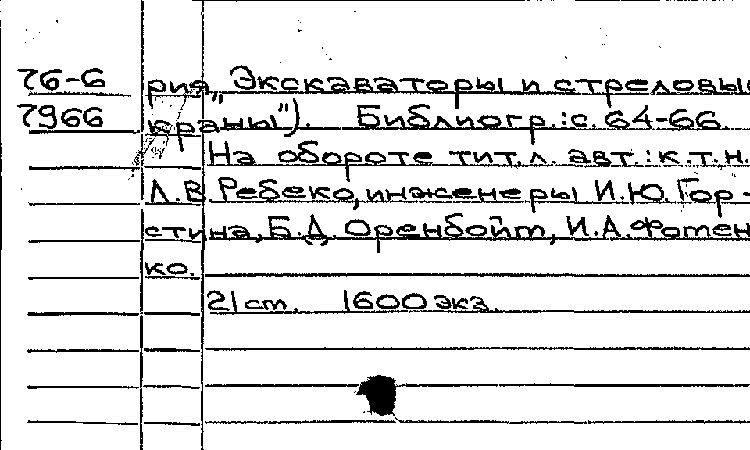 76-6 рия „Экскаваторы и стреловые
7966 краны"). Библиогр.: с. 64-66.
На обороте тит. л. авт.: к.т.н.
Л.В. Ребеко, инженеры И.Ю. Гор-
стина, Б.Д. Оренбойт, И.А. Фотен
ко.
21 cm. 1600 экз.